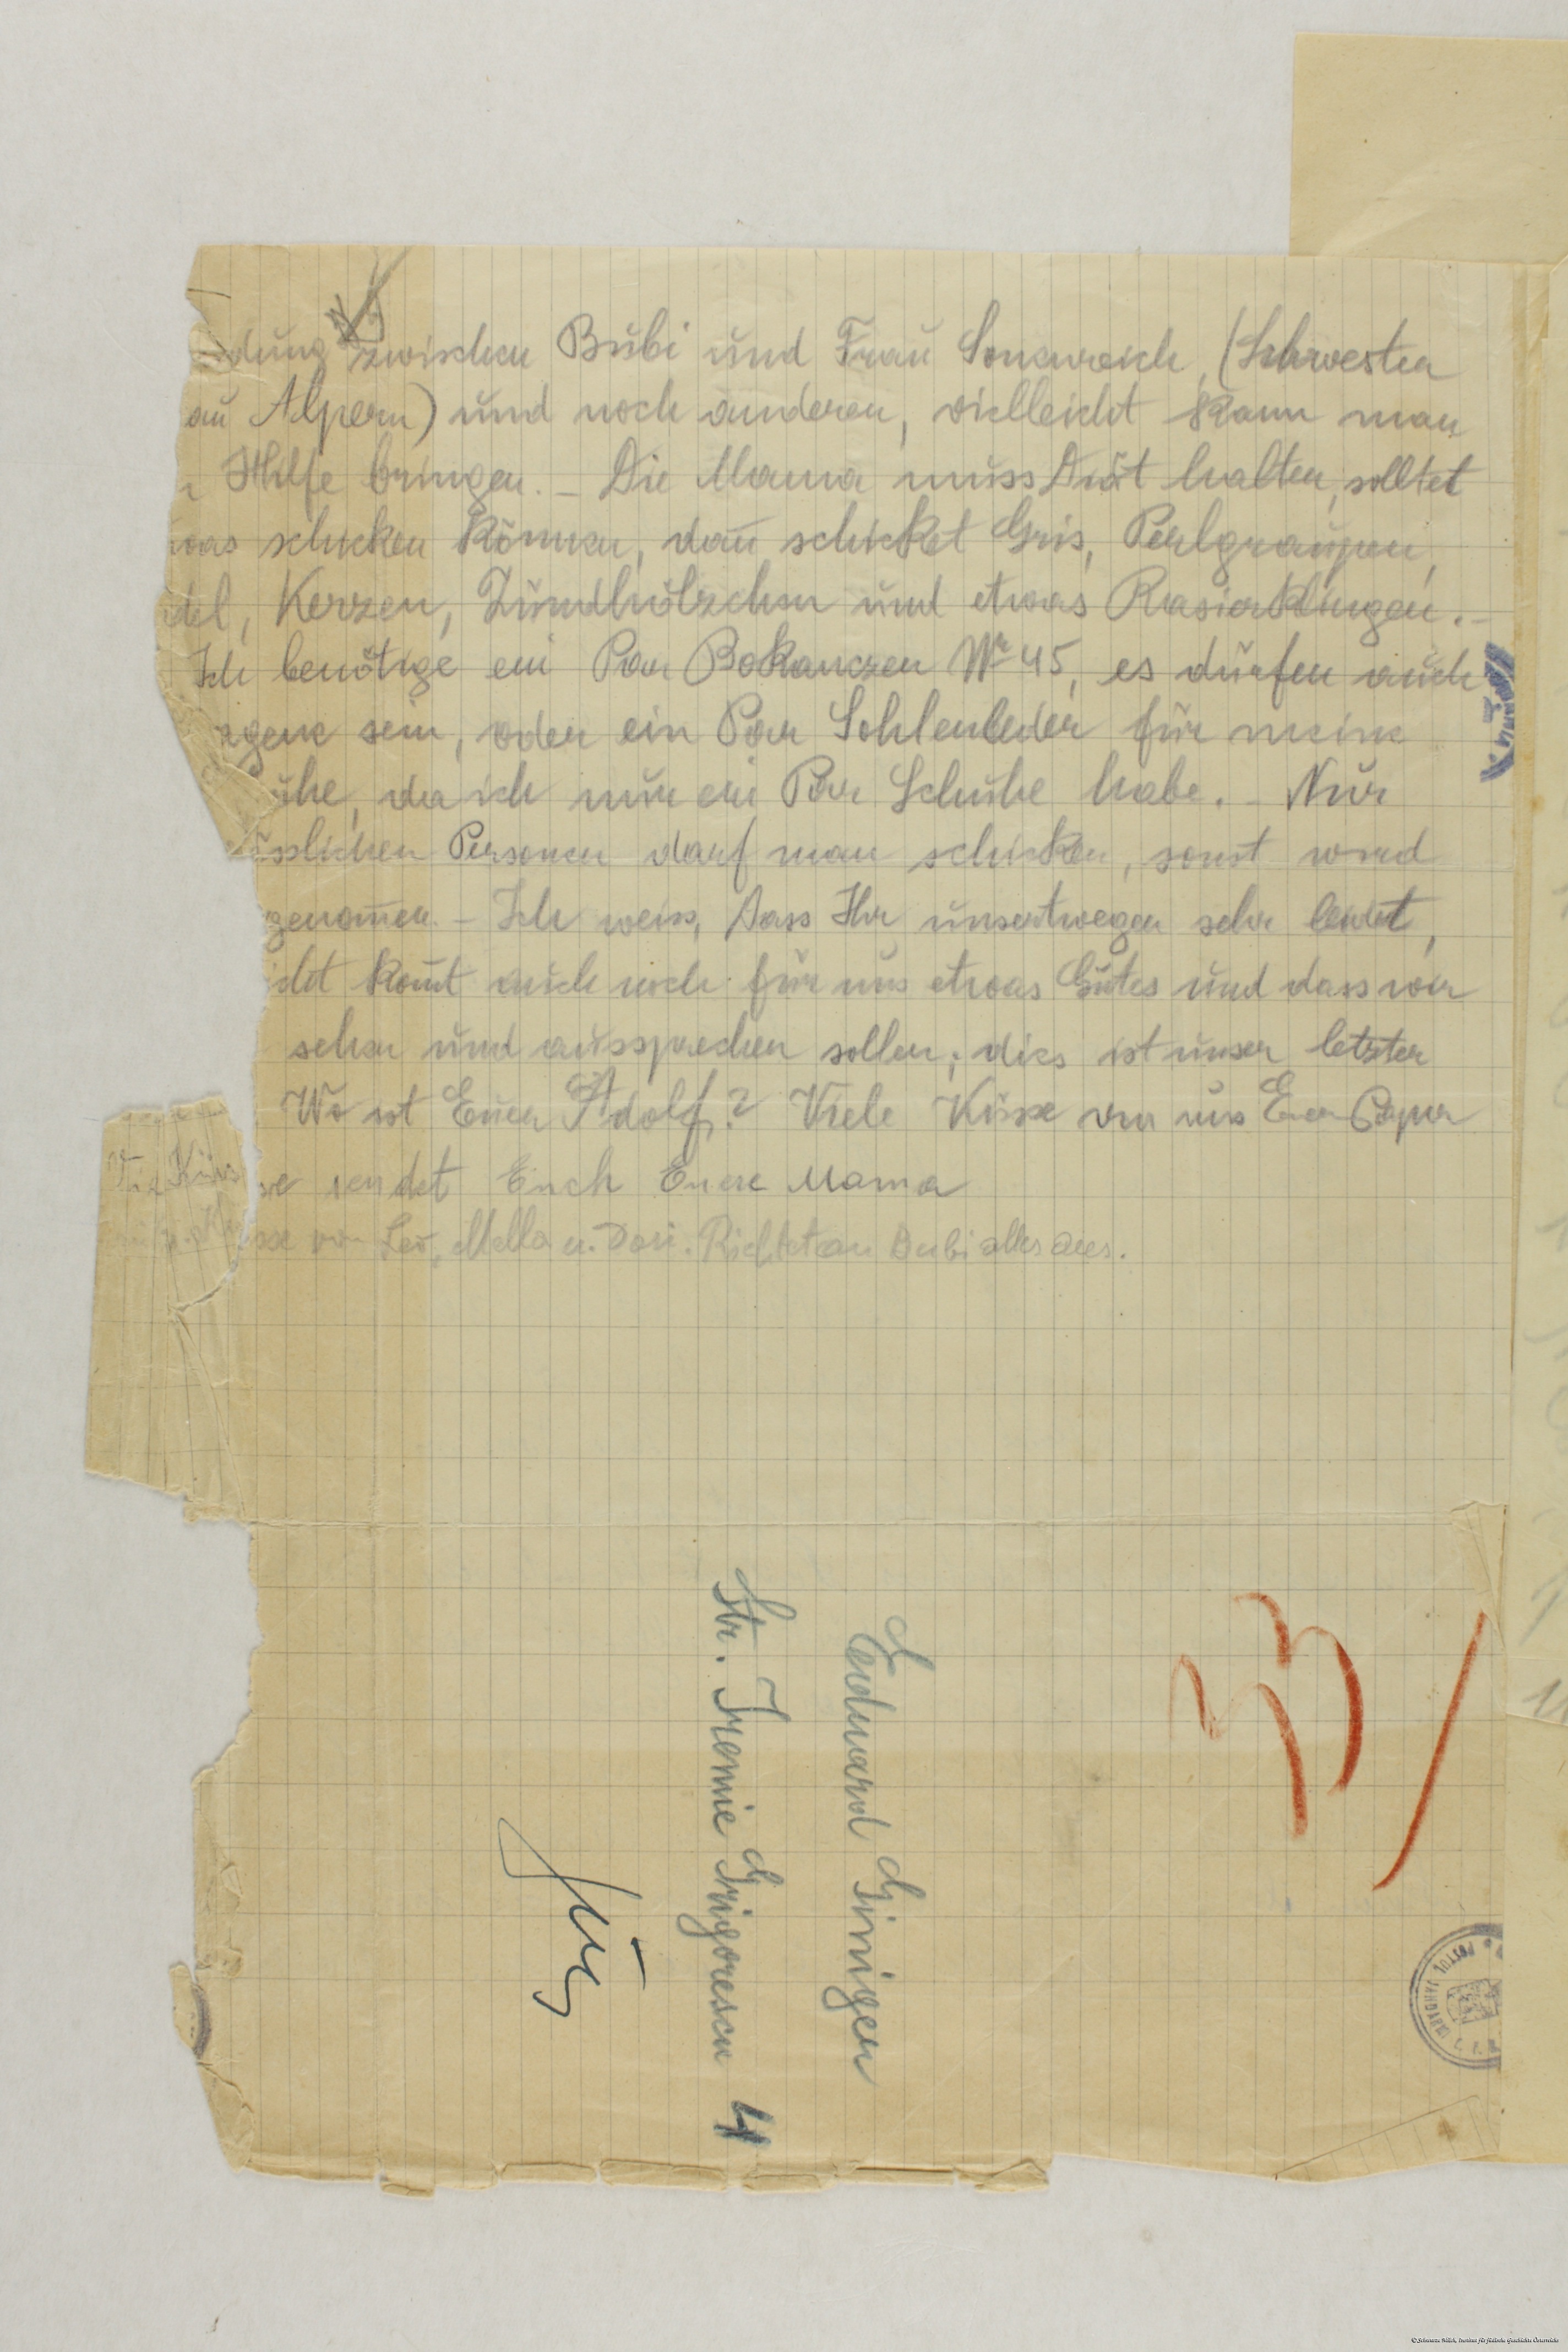 dung zwischen Bubi und Frau Sonenreich, (Schwester
au Alpern) und noch anderen, vielleicht kann man
Hilfe bringen. – Die Mama muss Diät halten, solltet
was schicken können, dañ schicket Gris, Perlgraupen,
del, Kerzen, Zündhölzchen und etwas Rasierklingen. –
Ich benötige ein Par Bokanczen Nr 45, es dürfen auch
agene sein, oder ein Par Sohlenleder für meine
uhe, da ich nur ein Par Schuhe habe. – Nur
ässlichen Personen darf man schicken, sonst wird
genom̄en. – Ich weiss, dass Ihr unsertwegen sehr leidet,
icht kom̄t auch noch für uns etwas Gutes und dass wir
sehen und aussprechen sollen, dies ist unser letzter
Wo ist Euer Adolf? Viele Küsse von uns Euer Papa
Viele Küsse sendet Euch Euere Mama
sse von Leo, Mella u. Dori. Richtet an Bubi alles aus.
Eduard Giniger
Str. Iremie Grigorescu 4